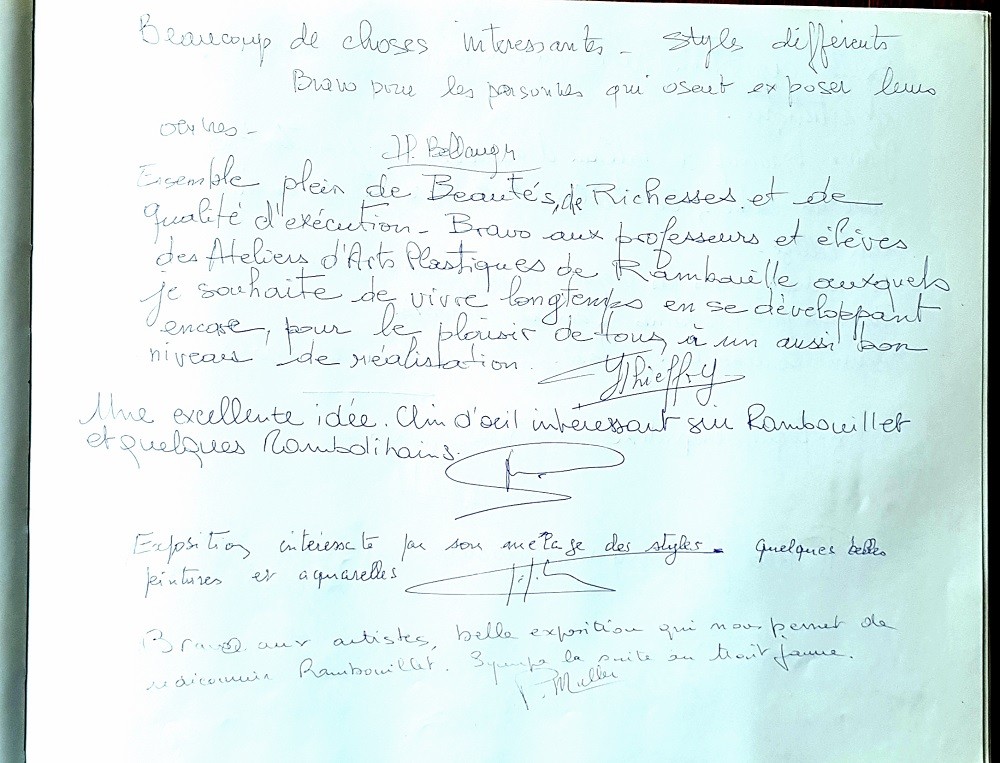 Beaucoup de choses interessantes - styles différents
Bravo pour les personnes qui osent exposer leurs
oeuvres -
Ensemble plein de Beautés, de Richesses et de
qualité d'exécution - Bravo aux professeurs et élèves
des Ateliers d'Arts Plastiques de Rambouille auxquels
je souhaite de vivre longtemps en se développant
encore, pour le plaisir de tous, à un aussi bon
niveau de réalistation.
Thieffry
Une excellente idée. Clin d'oeil intéressant sur Rambouillet
et quelques Rambolitains.
Exposition, intéressate par son métage des styles - quelques belles
peintures et aquarelles
Bravo aux artistes, belle exposition qui nous permet de
redécouvrir Rambouillet. Sympa la suite au trait jaune.
P. Muller